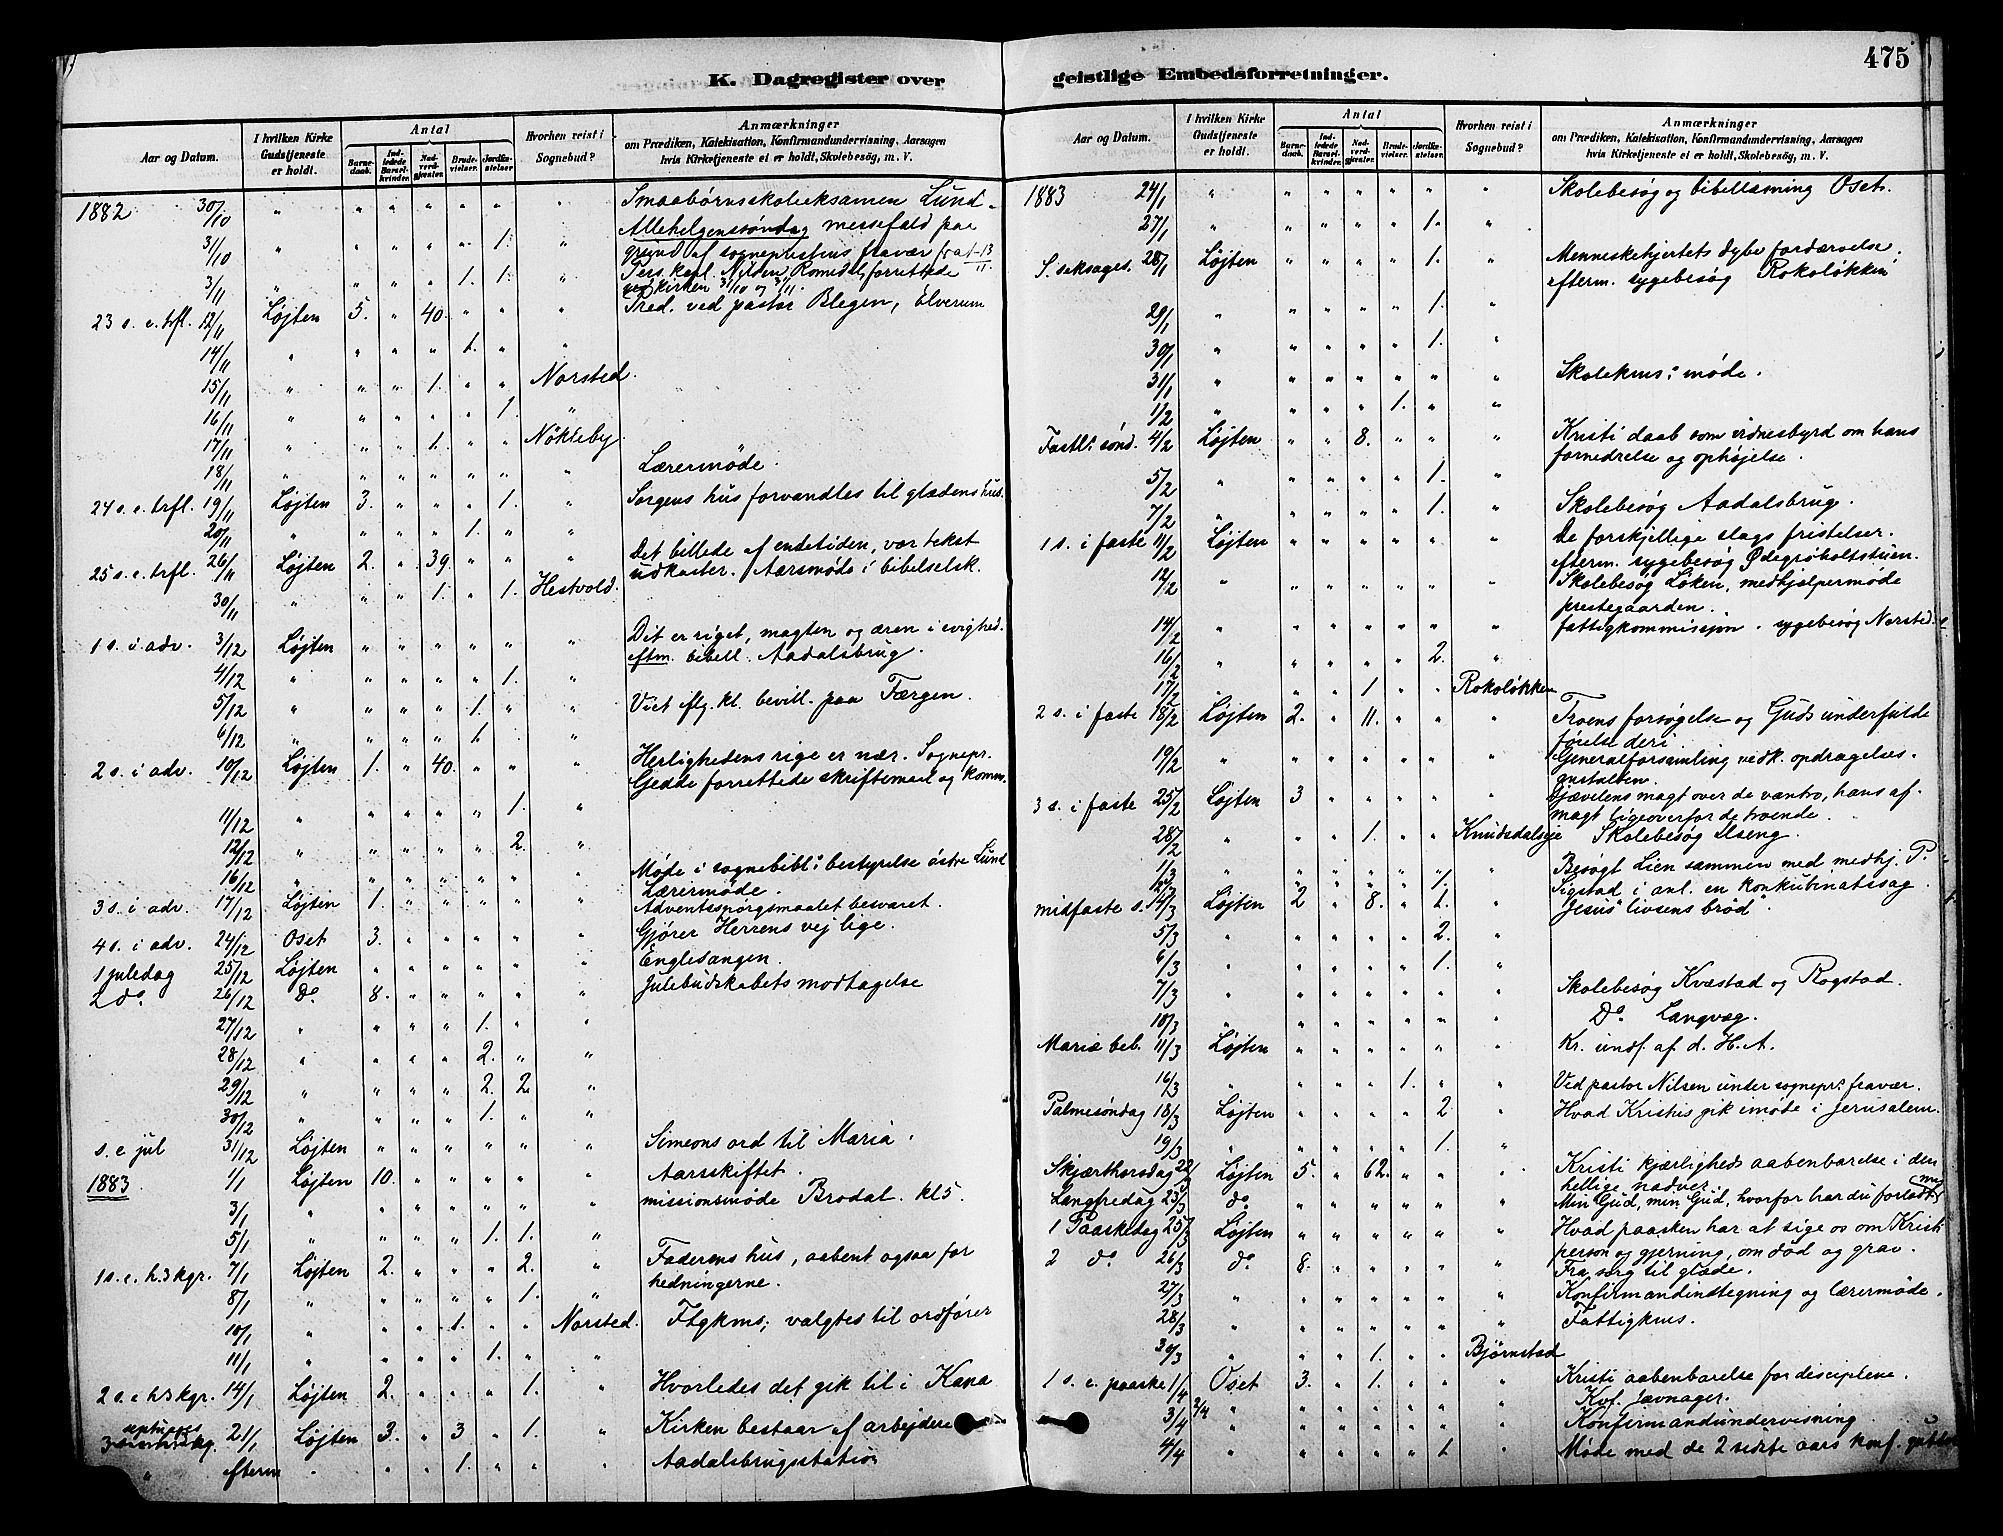 475
K. Dagregister over
geistlige Embedsforretninger.
Aar og Datum. I hvilken Kirke Gudstjeneste er holdt. Antal Barnedaab. Indledede Barselkvinder. Nadverdgjester. Brudevielser. Jordfæstelser. Hvorhen reist i Sognebud? Anmærkninger om Prædiken, Katekisation, Konfirmandundervisning, Aarsagen hvis Kirketjeneste ei er holdt, Skolebesøg, m. V.
1882 30/10 " " " " " " " Smaabørnsskoleeksamen Lund.
Allehelgenssøndag messefald paa
3/10 " " " " " 1. " grund af sogneprestens fravær fra t-13/11
Pers. kapl. Nilsen, Romedal, forrettede
3/11 " " " " 1. 1. " ved kirken 31/10 og 3/11.
23 s. e. trfl. 12/11 Løjten 5. " 40. " " " Præd. ved pastor Blegen, Elverum
14/11 " " " " 1. " "
15/11 " " " 1. " " Norsted.
16/11 " " " " " 1. "
17/11 " " " 1. " " Nøkleby.
18/11 " " " " " " " Lærermøde.
24 s. e. trfl. 19/11 Løjten 3. " " " 1. " Sorgens hus forvandles til glædens hus.
20/11 " " " " 1. " "
25 s. e. trfl. 26/11 Løjten 2. " 39. " " " Det billede af endetiden, vor tekst
udkaster. Aarsmøde i bibelselsk.
30/11 " " " 1. " 1. Hestvold.
1 s. i adv. 3/12 Løjten " " " " " " Dit er riget, magten og æren i evighed.
eftm. bibell. Aadalsbrug.
4/12 " " " " " 1. "
5/12 " " " " 1. " " Viet iflg. kl. bevill. paa Færgen.
6/12 " " " " 1. " "
2 s. i adv. 10/12 Løjten 1. " 40. " " " Herlighedens rige er nær. Sognepr.
Gedde forrettede skriftemaal og komm.
11/12 " " " " " 1. "
12/12 " " " " " 2. "
16/12 " " " " " " " Møde i sognebibl: bestyrelse østre Lund
Lærermøde.
3 s. i adv. 17/12 Løjten 1. " " " " " Adventsspørgsmaalet besvaret.
4 s. i adv. 24/12 Oset 3. " " " " " Gjører Herrens vej lige.
1 juledag 25/12 Løjten " " " " " " Englesangen.
2 do 26/12 Do 8. " " " " " Julebudskabets modtagelse
27/12 " " " " 1. " "
28/12 " " " " 2. " "
29/12 " " " " 2. 2. "
30/12 " " " " 1. " "
s. e jul 31/12 Løjten " " " " " " Simeons ord til Maria.
1883 1/1 Løjten 10. " " " " " Aarsskiftet.
3/1 " " " " " " " missionsmøde Brodal. kl 5.
5/1 " " " " 1. 1. "
1 s. e. h. 3 kgr. 7/1 Løjten 2. " " " 2. " Faderens hus, aabent ogsaa for
hedningerne.
8/1 " " " " " 1. "
10/1 " " " 1. " " Norsted. Ftgkms; valgtes til ordfører
11/1 " " " " 1. " "
2 s. e. h. 3 kgr. 14/1 Løjten 2. " " " 1. " Hvorledes det gik til i Kana
21/1 Løjten 3. " 3 " 1. " Kirken bestaar af arbejdere
" efterm " " " 1. " " " Aadalsbrugsstation
Aar og Datum. I hvilken Kirke Gudstjeneste er holdt. Antal Barnedaab. Indledede Barselkvinder. Nadverdgjester. Brudevielser. Jordfæstelser. Hvorhen reist i Sognebud? Anmærkninger om Prædiken, Katekisation, Konfirmandundervisning, Aarsagen hvis Kirketjeneste ei er holdt, Skolebesøg, m. V.
1883 24/1 " " " " " " " Skolebesøg og bibellæsning Oset.
27/1 " " " " " 1. "
S. seksages. 28/1 Løjten " " " " 1. " Menneskehjertets dybe fordærvelse;
efterm. sygebesøg Rokoløkken
29/1 " " " " " 1. "
30/1 " " " " " 1. "
31/1 " " " " " " " Skolekms: møde.
1/2 " " " " 1. " "
Fastl: sønd. 4/2 Løjten " " 8. " " " Kristi daab som vidnesbyrd om hans
fornedrelse og ophøjelse.
5/2 " " " " " 1. "
7/2 " " " " " 1. " Skolebesøg Aadalsbrug.
1 s. i faste 11/2 Løjten " " " " " " De forskjellige slags fristelser.
efterm. sygebesøg Ødegrøholtstuen.
12/2 " " " " " " " Skolebesøg Løken, medhjælpermøde
prestegaarden.
14/2 " " " " " " " fattigkommissjon. sygebesøg Norsted.
16/2 " " " " " 2. "
17/2 " " " 1 " " Rokoløkken
2 s. i faste 18/2 Løjten 2. " 11. " " " Troens forsøgelse og Guds underfulde
førelse deri.
19/2 " " " " " " " Generalforsamling vedk. opdragelses-
anstalten.
3 s. i faste 25/2 Løjten 3 " " " " " Djævelens magt over de vantro, hans af-
magt ligeoverfor de troende.
28/2 " " " 1. " " Knudsdalseje Skolebesøg Ilseng.
1/3 " " " " " " " Besøgt Lien sammen med medhj. P.
Sigstad i anl. en konkubinatssag.
midfaste s. 4/3 Løjten 2 " 8. " 1. " Jesus "livsens brød".
5/3 " " " " " 2. "
6/3 " " " " " 1. "
7/3 " " " " " " " Skolebesøg Kvæstad og Rogstad.
10/3 " " " " " " " Do. Langvæg.
Mariæ beb. 11/3 Løjten " " " " " " Kr. undf. af d. H. A.
16/3 " " " " 1. " " Ved pastor Nilsen under sognepr: fravær.
Palmesøndag 18/3 Løjten " " " " 2. " Hvad Kristus gik imøde i Jerusalem.
19/3 " " " " " 1. "
Skjærthorsdag 22/3 Løjten 5. " 62. " " " Kristi kjærligheds aabenbarelse i den
hellige nadver.
Langfredag 23/3 do " " " " " " Min Gud, min Gud, hvorfor har du forladt mig
1 Paaskedag 25/3 Løjten " " " " " " Hvad paasken har at sige os om Kristi
person og gjerning, om død og grav.
2 do 26/3 do 8. " " " " " Fra sorg til glæde.
27/3 " " " " " " " Konfirmandindtegning og lærermøde.
28/3 " " " " " " " Fattigkms.
30/3 " " " 1. " " Bjørnstad
1 s. e. paaske 1/4 Oset 3. " 1. " " " Kristi aabenbarelse for disciplene.
2/4 Kvf. Jævnager.
3/4 " " " " " " " Konfirmandundervisning
4/4 " " " " " 1 " Møde med de 2 sidste aars konf. gutter